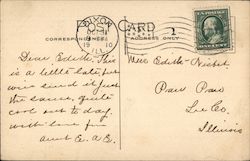 POST CARD
CORRESPONDENCE
ADDRESS ONLY
DIXON
OCT 31
1910
ILL.
1
Dear Edith. This
is a little late, but
will send it just
the same. quite
cool out to day,
with love from
aunt E. A. E.
Miss Edith
Paw Paw
Lee Co.
Illinois